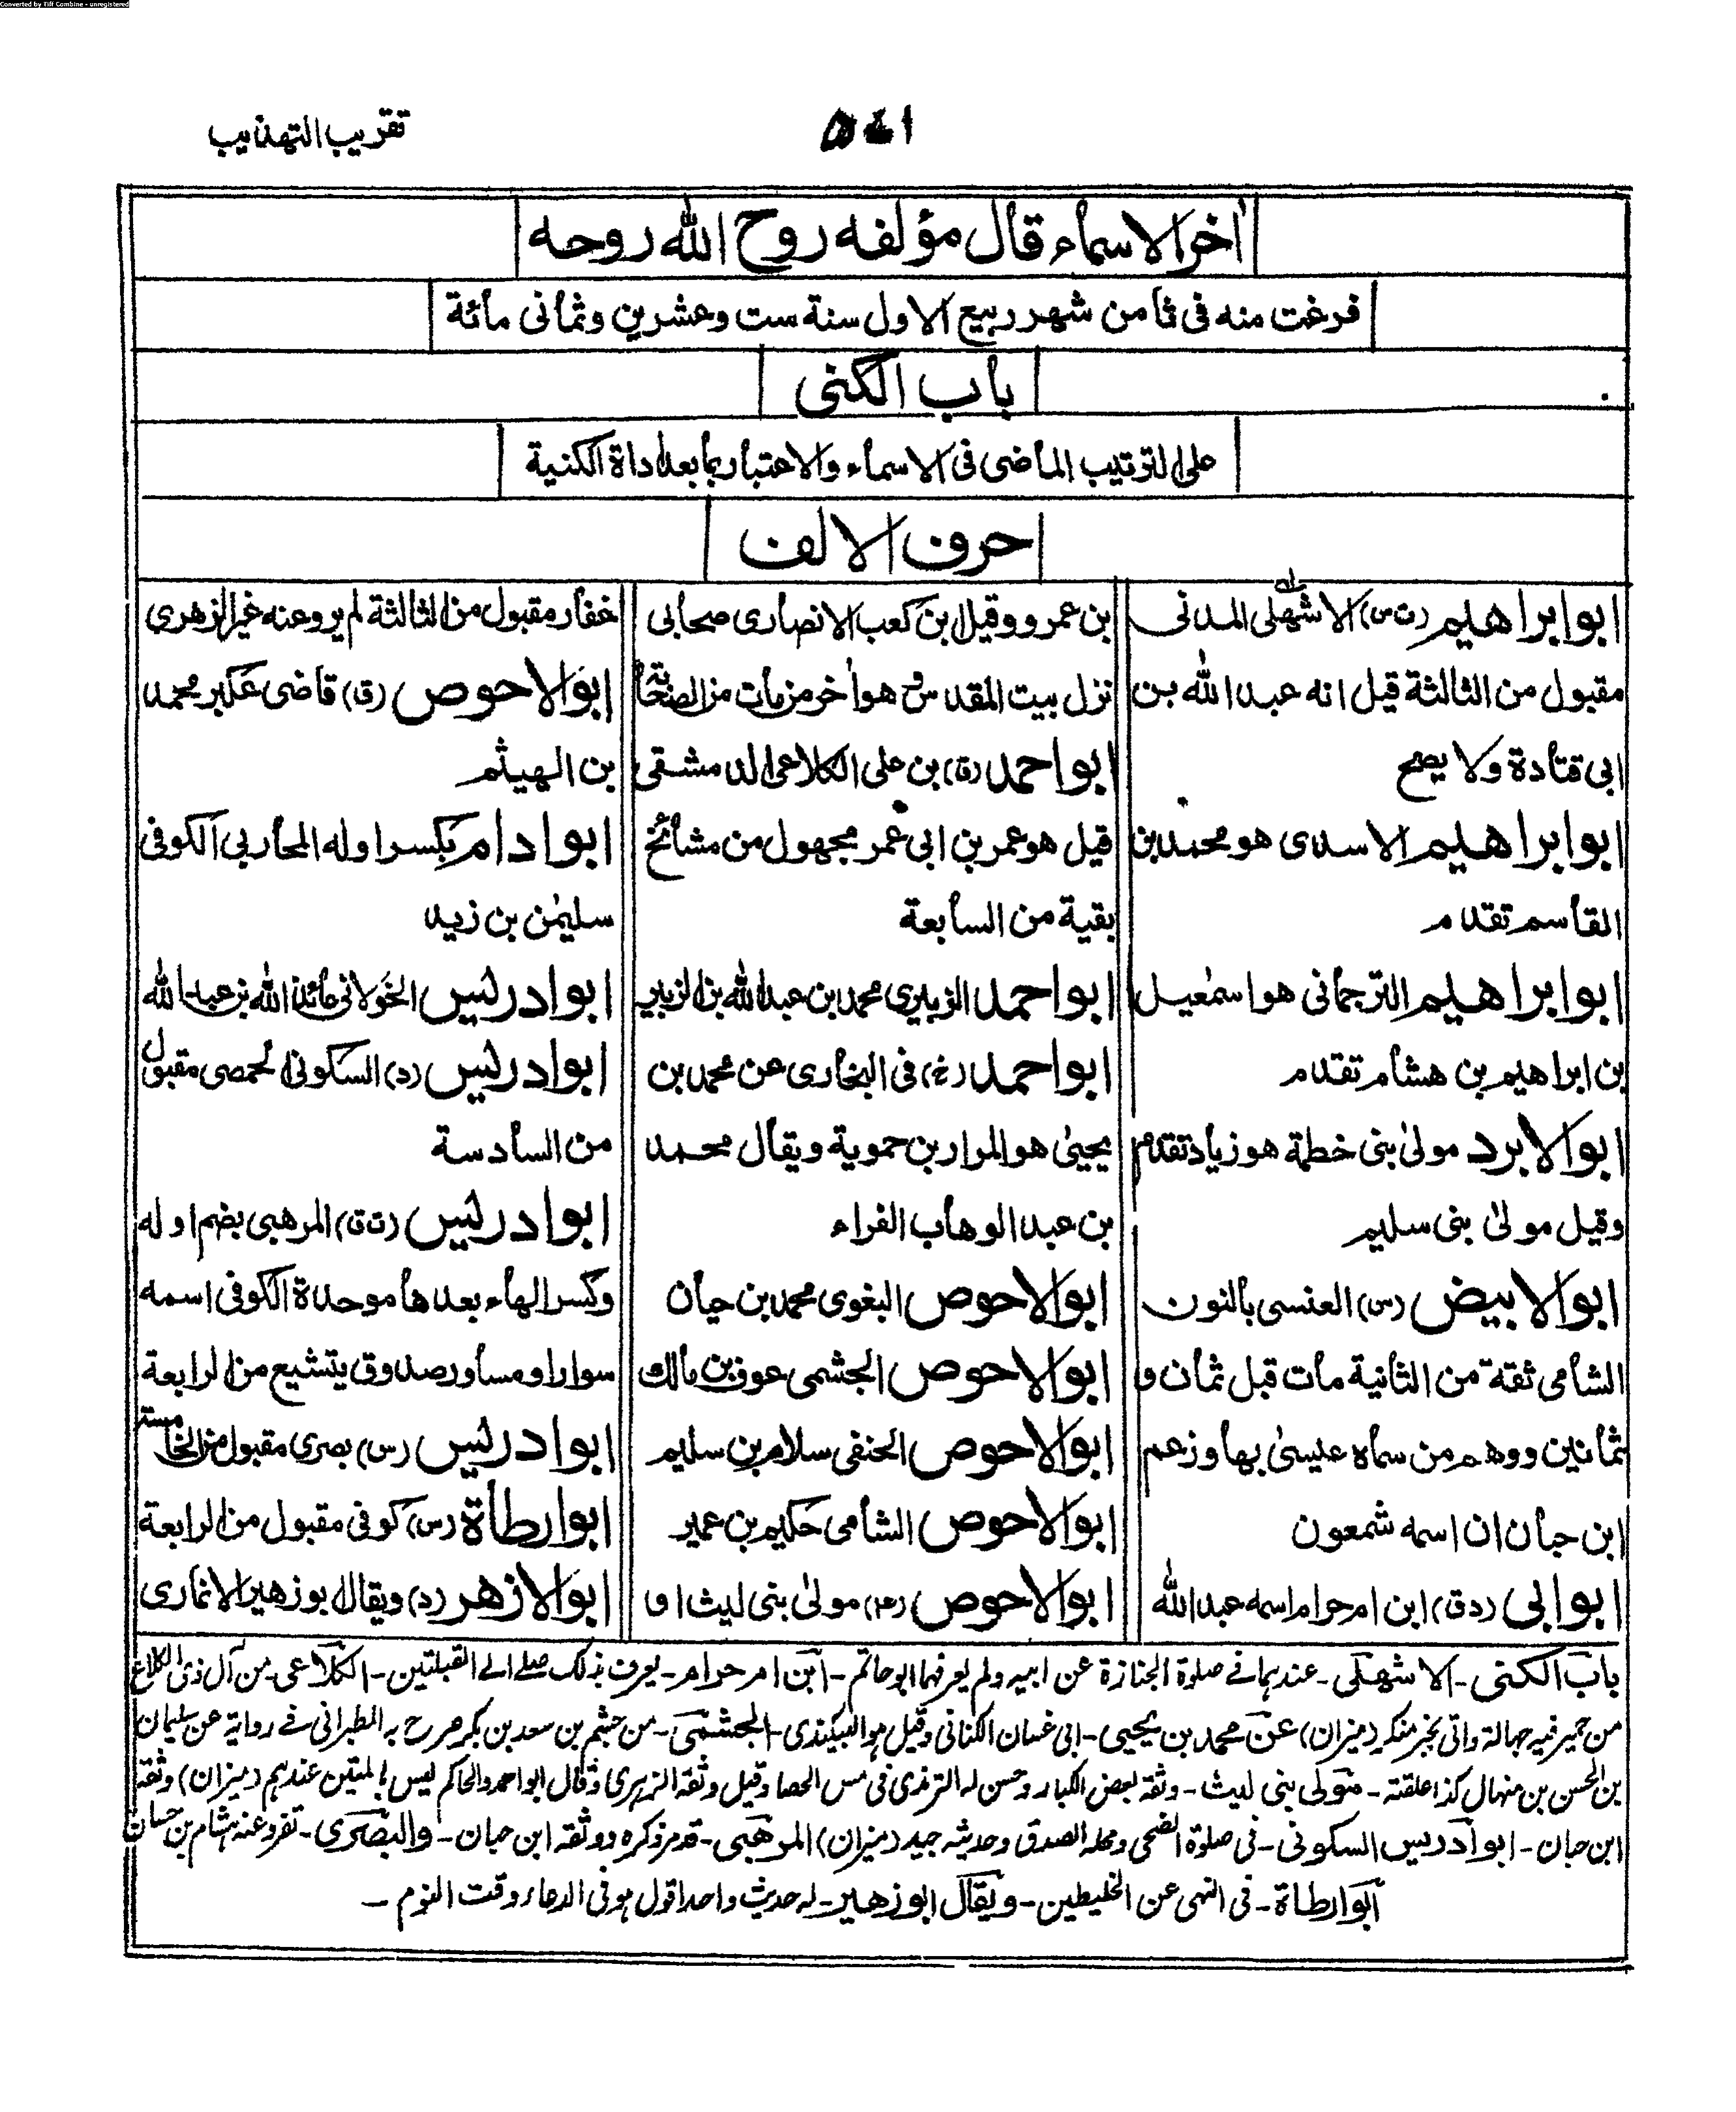 Converted by Tiff Combine - unregistered
تقريب التهذيب
اخر الاسماء قال مؤلفه روح الله روحه
فرغت منه فى ثامن شهر ربيع الاول سنة ست وعشرين وثمانى مائة
باب الكنى
على الترتيب الماضى فى الاسماء والاعتبار بما بعد اداة الكنية
حرف الالف
ابو ابراهيم (ت س) الاشهلى المدنى
مقبول من الثالثة قيل انه عبد الله بن
ابى قتادة ولا يصح
ابو ابراهيم الاسدى هو محمد بن
القاسم تقدم
ابو ابراهيم الترجمانى هو اسمٰعيل
بن ابراهيم بن هشام تقدم
ابو الابرد مولىٰ بنى خطمة هو زياد تقدم
وقيل مولىٰ بنى سليم
ابو الابيض (س) العنسى بالنون
الشامى ثقة من الثانية مات قبل ثمان و
ثمانين ووهم من سماه عيسىٰ بها وزعم
ابن حبان ان اسمه شمعون
ابو ابى (د ق) ابن ام حرام اسمه عبد الله
بن عمرو وقيل بن كعب الانصارى صحابى
نزل بيت المقدس وهو اٰخر من مات من الصحابة بها
ابو احمد (ق) بن على الكلاعى الدمشقى
قيل هو عمر بن ابى عمر مجهول من مشائخ
بقية من السابعة
ابو احمد الزبيرى محمد بن عبد الله بن الزبير
ابو احمد (خ) فى البخارى عن محمد بن
يحيىٰ هو المرار بن حموية ويقال محمد
بن عبد الوهاب الفراء
ابو الاحوص البغوى محمد بن حيان
ابو الاحوص الجشمى عوف بن مالك
ابو الاحوص الحنفى سلام بن سليم
ابو الاحوص الشامى حكيم بن عمير
ابو الاحوص (٤) مولىٰ بنى ليث او
غفار مقبول من الثالثة لم يرو عنه غير الزهرى
ابو الاحوص (ق) قاضى عكبر محمد
بن الهيثم
ابو ادام بكسر اوله المحاربى الكوفى
سليمٰن بن زيد
ابو ادريس الخولانى عائذ الله بن عبد الله
ابو ادريس (د) السكونى الحمصى مقبول
من السادسة
ابو ادريس (ت ق) المرهبى بضم اوله
وكسر الهاء بعدها موحدة الكوفى اسمه
سوار او مساور صدوق يتشيع من الرابعة
ابو ادريس (س) بصرى مقبول من الخامسة
ابو ارطأة (س) كوفى مقبول من الرابعة
ابو الازهر (د) ويقال ابو زهير الانمارى
باب الكنى - الاشهلى - عندهما فے صلوة الجنازة عن ابيه ولم يعرفهما ابو حاتم - ابن ام حرام - يعرف بذلك صلے الے القبلتين - الكلاعى - من آل ذى الكلاع
من حمير فيه جهالة واتى بخبر منكر (ميزان) عن محمد بن يحيى - ابى غسان الكنانى وقيل هو البيكندى - الجشمى - من جشم بن سعد بن بكر صرح به الطبرانى فے رواية عن سليمان
بن الحسن بن منهال كذا علقته - مولى بنى ليث - وثقه بعض الكبار وحسن له الترمذى فى مس الحصا وقيل وثقه الزهرى وقال ابو احمد والحاكم ليس بالمتين عندهم (ميزان) وثقه
ابن حبان - ابو ادريس السكونى - فى صلوة الضحى ومحله الصدق وحديثه جيد (ميزان) المرهبى - قد مر ذكره ووثقه ابن حبان - والبصرى - تفرد عنه هشام بن حسان
ابو ارطاة - فى النهى عن الخليطين - ويقال ابو زهير - له حديث واحد اقول هو فى الدعاء وقت النوم -